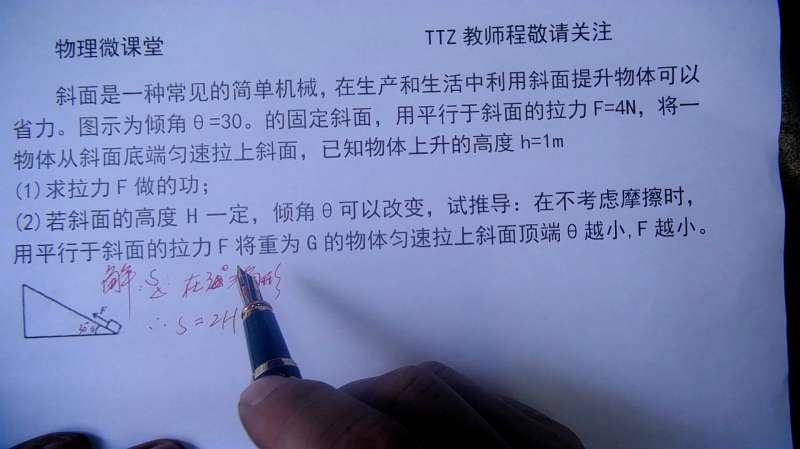 物理微课堂 TTZ教师程敬请关注
斜面是一种常见的简单机械，在生产和生活中利用斜面提升物体可以
省力。图示为倾角θ=30。的固定斜面，用平行于斜面的拉力F=4N，将一
物体从斜面底端匀速拉上斜面，已知物体上升的高度h=1m
(1)求拉力F做的功；
(2)若斜面的高度 H 一定，倾角θ可以改变，试推导：在不考虑摩擦时，
用平行于斜面的拉力F将重为G的物体匀速拉上斜面顶端θ越小,F越小。
解: 在30° 角形
∴ S=2H
F
30° θ